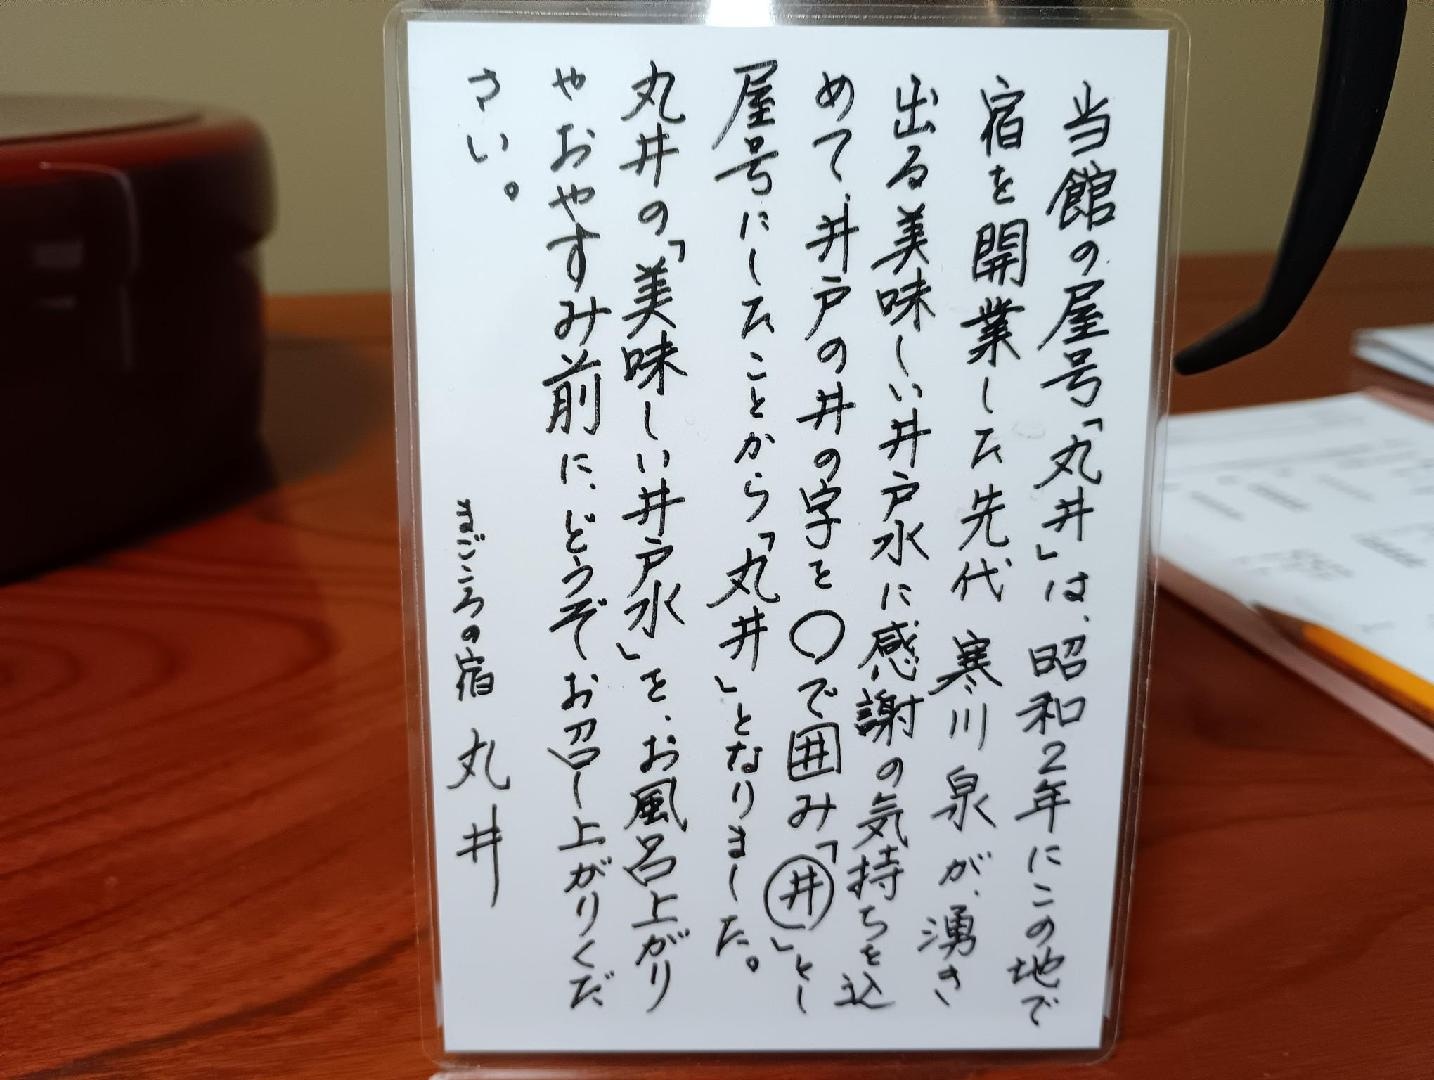 当館の屋号「丸井」は、昭和2年にこの地で
宿を開業した先代 寒川 泉が、湧き
出る美味しい井戸水に感謝の気持ちを込
めて、井戸の井の字を〇で囲み「㊥井」とし
屋号にしたことから「丸井」となりました。
丸井の「美味しい井戸水」を、お風呂上がり
やおやすみ前に、どうぞお召し上がりくだ
さい。
まごころの宿 丸井